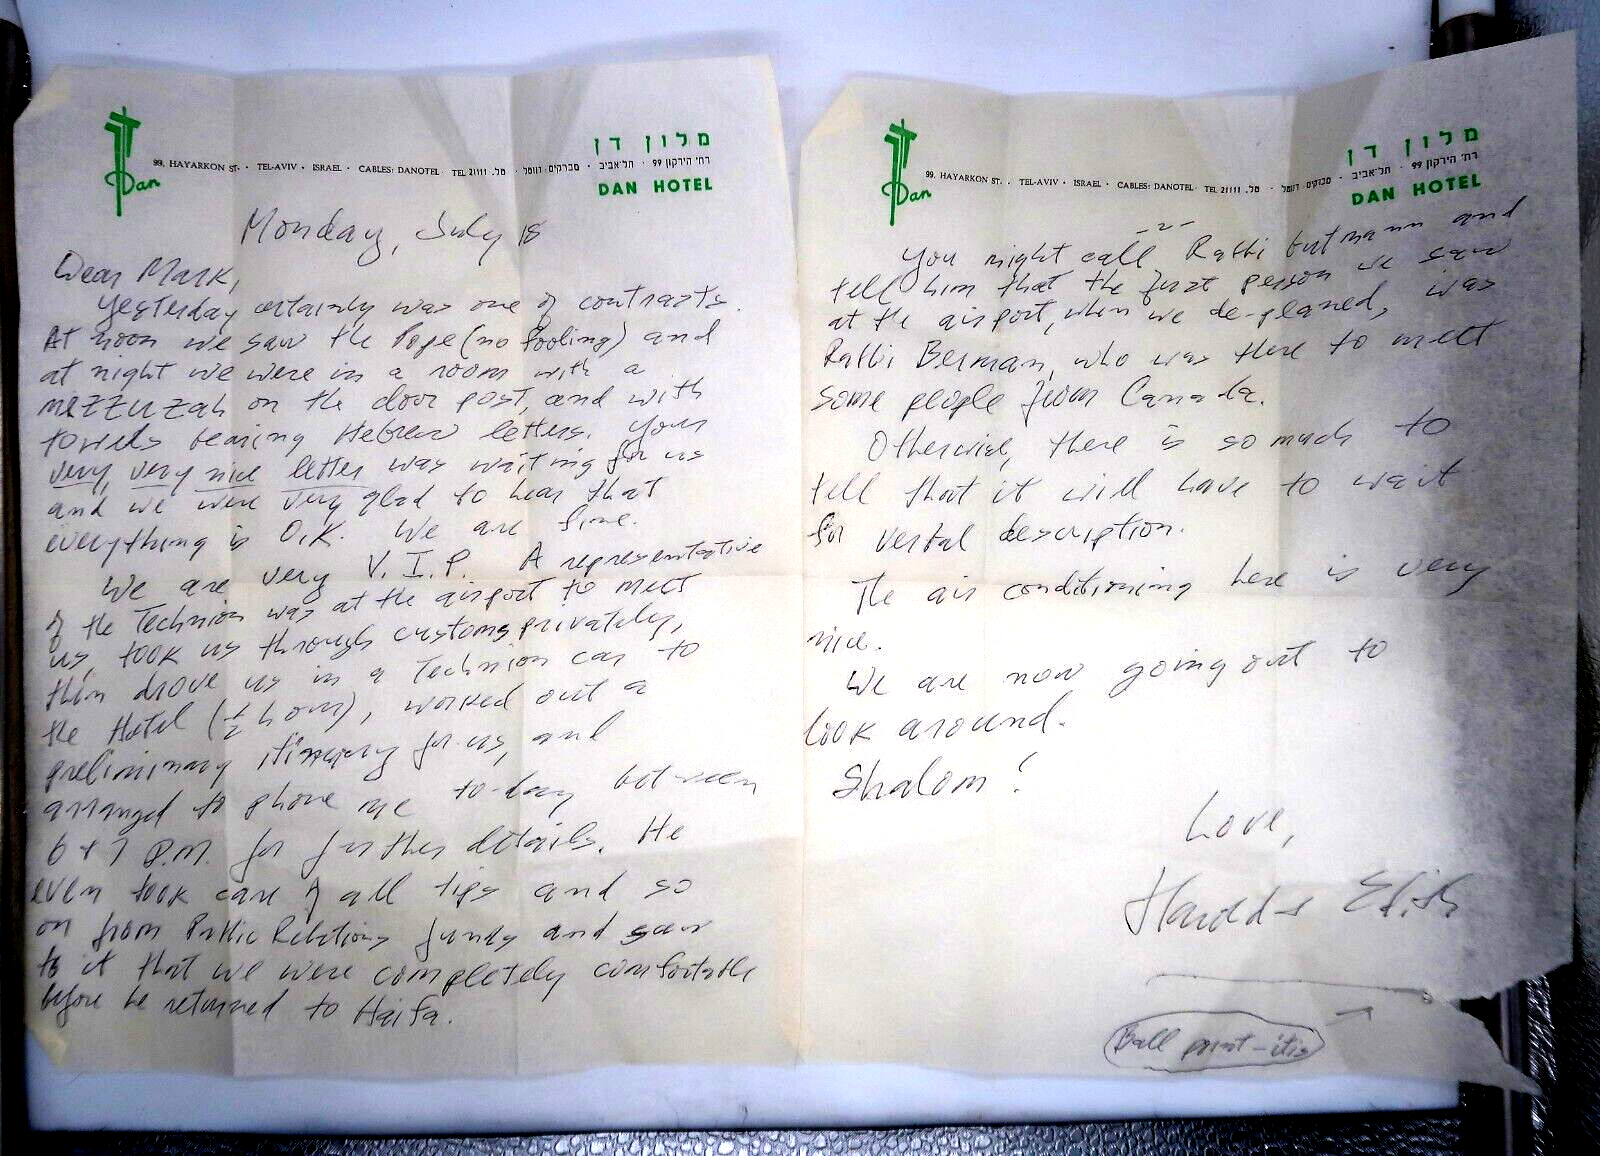 Dan
99, HAYARKON ST. · TEL-AVIV · ISRAEL · CABLES: DANOTEL TEL 21111 מל. · מברקים דנוטל · רח׳ הירקון 99 · תל־אביב
מלון דן
DAN HOTEL
Monday, July 18
Dear Mark,
Yesterday certainly was one of contrasts.
At noon we saw the Pope (no fooling) and
at night we were in a room with a
mezzuzah on the door post, and with
towels bearing Hebrew letters. Your
very, very nice letter was waiting for us
and we were very glad to hear that
everything is O.K. We are fine.
We are very V.I.P. A representative
of the Technion was at the airport to meet
us, took us through customs privately,
then drove us in a Technion car to
the Hotel (1/2 hour), worked out a
preliminary itinerary for us, and
arranged to phone me to-day between
6 + 7 P.M. for further details. He
even took care of all tips and so
on from Public Relations funds and saw
to it that we were completely comfortable
before he returned to Haifa.
Dan
99, HAYARKON ST. · TEL-AVIV · ISRAEL · CABLES: DANOTEL TEL 21111 מל. · מברקים דנוטל · רח׳ הירקון 99 · תל־אביב
מלון דן
DAN HOTEL
-2-
You might call Rabbi Gutmann and
tell him that the first person we saw
at the airport, when we de-planed, was
Rabbi Berman, who was there to meet
some people from Canada.
Otherwise, there is so much to
tell that it will have to wait
for verbal description.
The air conditioning here is very
nice.
We are now going out to
look around.
Shalom!
Love,
Harold + Edith
Ball point-itis